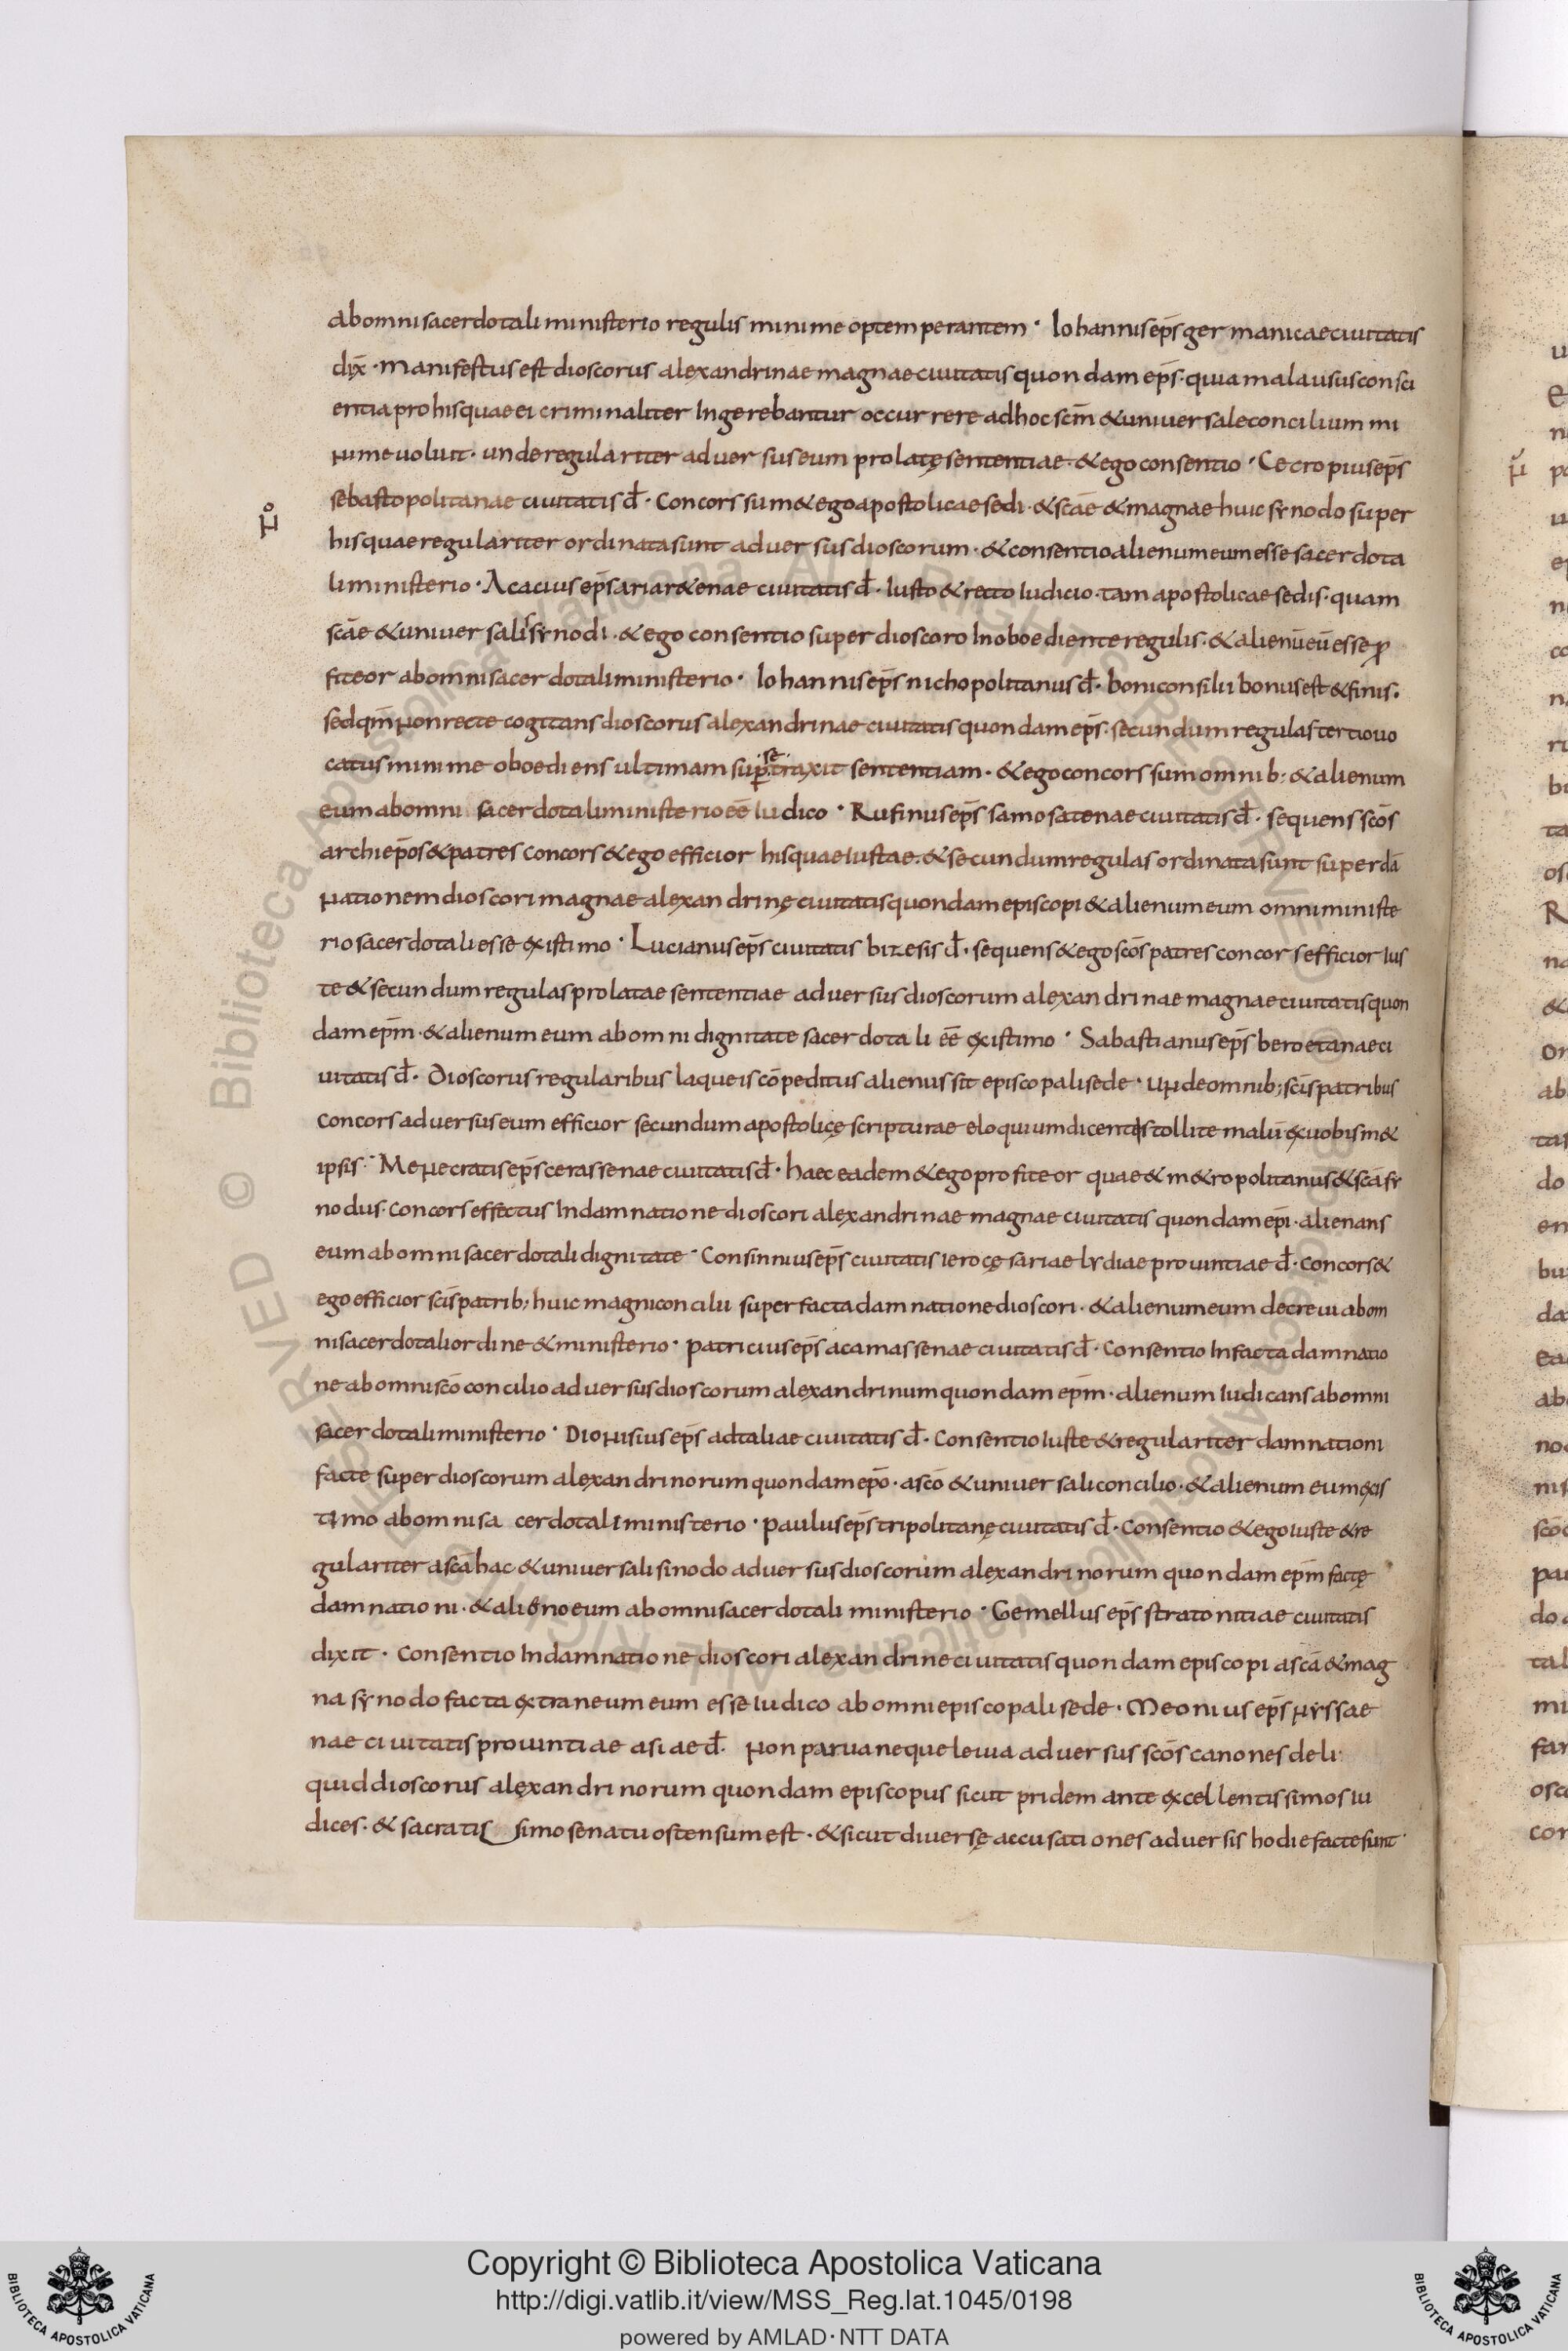 abomni sacerdotali ministerio regulis minime optemperantem · Iohannis ep̄s germanicae ciuitatis
dix̄ · Manifestus est dioscorus alexandrinae magnae ciuitatis quondam ep̄s · quia mala usus consci
entia pro his quae ei criminaliter Ingerebantur occurrere ad hoc sc̄m & uniuersale concilium mi
nime uoluit · unde regulariter aduersus eum prolatę sententiae · & ego consentio · Cecropius ep̄s
sebastopolitanae ciuitatis đ · Concors sum & ego apostolicae sedi · & scāe & magnae huic synodo super
his quae regulariter ordinata sunt aduersus dioscorum · & consentio alienum eum esse sacerdota
li ministerio · Acacius ep̄s ariar&enae ciuitatis đ · Iusto & recto Iudicio · tam apostolicae sedis · quam
scāe & uniuersalis synodi · & ego consentio super dioscoro Inoboediente regulis · & alienū eū esse ꝓ
fiteor abomni sacerdotali ministerio · Iohannis ep̄s nichopolitanus đ · boni consilii bonus est & finis ·
sed qm̄ non recte cogitans dioscorus alexandrinae ciuitatis quondam ep̄s · secundum regulas tertio uo
catus minime oboediens ultimam suꝑ se traxit sententiam · & ego concors sum omnib; & alienum
eum abomni sacerdotali ministerio eē Iudico · Rufinus ep̄s samosatenae ciuitatis đ · sequens scōs
archiep̄os & patres concors & ego efficior his quae Iustae · & secundum regulas ordinata sunt super dā
nationem dioscori magnae alexandrinę ciuitatis quondam episcopi & alienum eum omni ministe
rio sacerdotali esse existimo · Lucianus ep̄s ciuitatis bizesis đ · sequens & ego scōs patres concors efficior Ius
te & secundum regulas prolatae sententiae aduersus dioscorum alexandrinae magnae ciuitatis quon
dam ep̄m · & alienum eum abomni dignitate sacerdotali eē existimo · Sabastianus ep̄s beroetanae ci
uitatis đ · Dioscorus regularibus laqueis cōpeditus alienus sit episcopali sede · unde omnib; scīs patribus
concors aduersus eum efficior secundum apostolicę scripturae eloquium dicentis tollite malū ex uobism&
ipsis · Menecratis ep̄s cerassenae ciuitatis đ · haec eadem & ego profiteor quae & m&ropolitanus & scā sy
nodus · concors effectus Indamnatione dioscori alexandrinae magnae ciuitatis quondam ep̄i · alienans
eum abomni sacerdotali dignitate · Consinnius ep̄s ciuitatis ierocęsariae lydiae prouintiae đ · concors &
ego efficior scīs patrib; huic magni concilii super facta damnatione dioscori · & alienum eum decreui abom
ni sacerdotali ordine & ministerio · patricius ep̄s acamassenae ciuitatis đ · Consentio Infacta damnatio
ne abomni scō concilio aduersus dioscorum alexandrinum quondam ep̄m · alienum Iudicans abomni
sacerdotali ministerio · Dionisius ep̄s adtaliae ciuitatis đ · Consentio Iuste & regulariter damnationi
facte super dioscorum alexandrinorum quondam ep̄o · a scō & uniuersali concilio · & alienum eum exis
timo abomni sacerdotali ministerio · paulus ep̄s tripolitanę ciuitatis đ · Consentio & ego Iuste & re
gulariter a scā hac & uniuersali sinodo aduersus dioscorum alexandrinorum quondam ep̄m factę
damnationi · & alieno eum abomni sacerdotali ministerio · Gemellus ep̄s stratonitiae ciuitatis
dixit · Consentio Indamnatione dioscori alexandrine ciuitatis quondam episcopi a scā & mag
na synodo facta extraneum eum esse Iudico abomni episcopali sede · Meonius ep̄s nyssae
nae ciuitatis prouintiae asiae đ · non parua neque leuia aduersus scōs canones deli
quid dioscorus alexandrinorum quondam episcopus sicut pridem ante excellentissimos Iu
dices · & sacratissimo senatu ostensum est · & sicut diuersę accusationes aduersis hodie facte sunt ·
Copyright © Biblioteca Apostolica Vaticana
http://digi.vatlib.it/view/MSS_Reg.lat.1045/0198
powered by AMLAD·NTT DATA
BIBLIOTECA APOSTOLICA VATICANA
BIBLIOTECA APOSTOLICA VATICANA